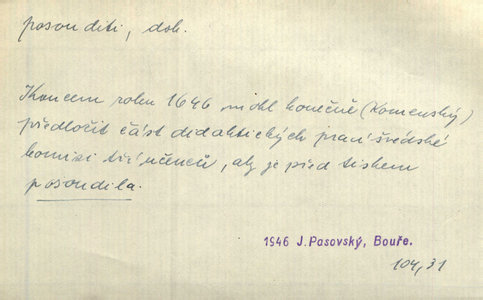 posouditi, dok.
Koncem roku 1646 mohl konečně (Komenský)
předložit část didaktických prací švédské
komisi tří učenců, aby je před tiskem
posoudila.
1946 J. Pasovský, Bouře.
104,31